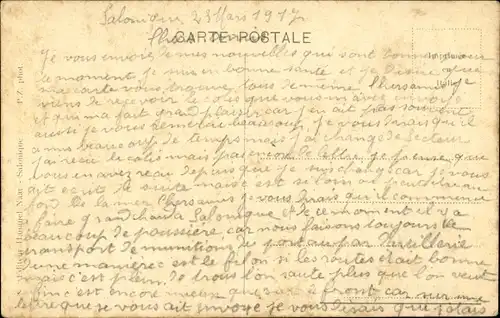 Salonique 23 Mars 1917
CARTE POSTALE
Chers Amis
Je vous envoie de mes nouvelles qui sont bonnes pour
le moment je suis en bonne santé et je désire que
ma carte vous trouve tous de même. Chers amis je
viens de recevoir le colis que vous m'avez envoyé
et qui m'a fait grand plaisir car j'en ai pas souvent
aussi je vous remercie beaucoup. je vous dirais qu'il
a mis beaucoup de temps mais j'ai changé de secteur
j'ai reçu le colis mais pas encore de lettre je pense que
vous en avez reçu depuis que je suis changé car je vous
ait écrit de suite mais c'est si loin
de la mer Chers amis je vous dirais qu'il commence
a faire grand chaud a Salonique et ce moment il y a
beaucoup de poussière car nous faisons toujours le
transport de munitions du port au parc d'artillerie
d'une manière c'est le filon si les routes était bonne
mais c'est plein de trous l'on saute plus que l'on veut
enfin c'est encore mieux que sur le front car sur une
lettre que je vous ait envoyé je vous disais que j'allais
Hananel Naar - Salonique
P. Z. phot.